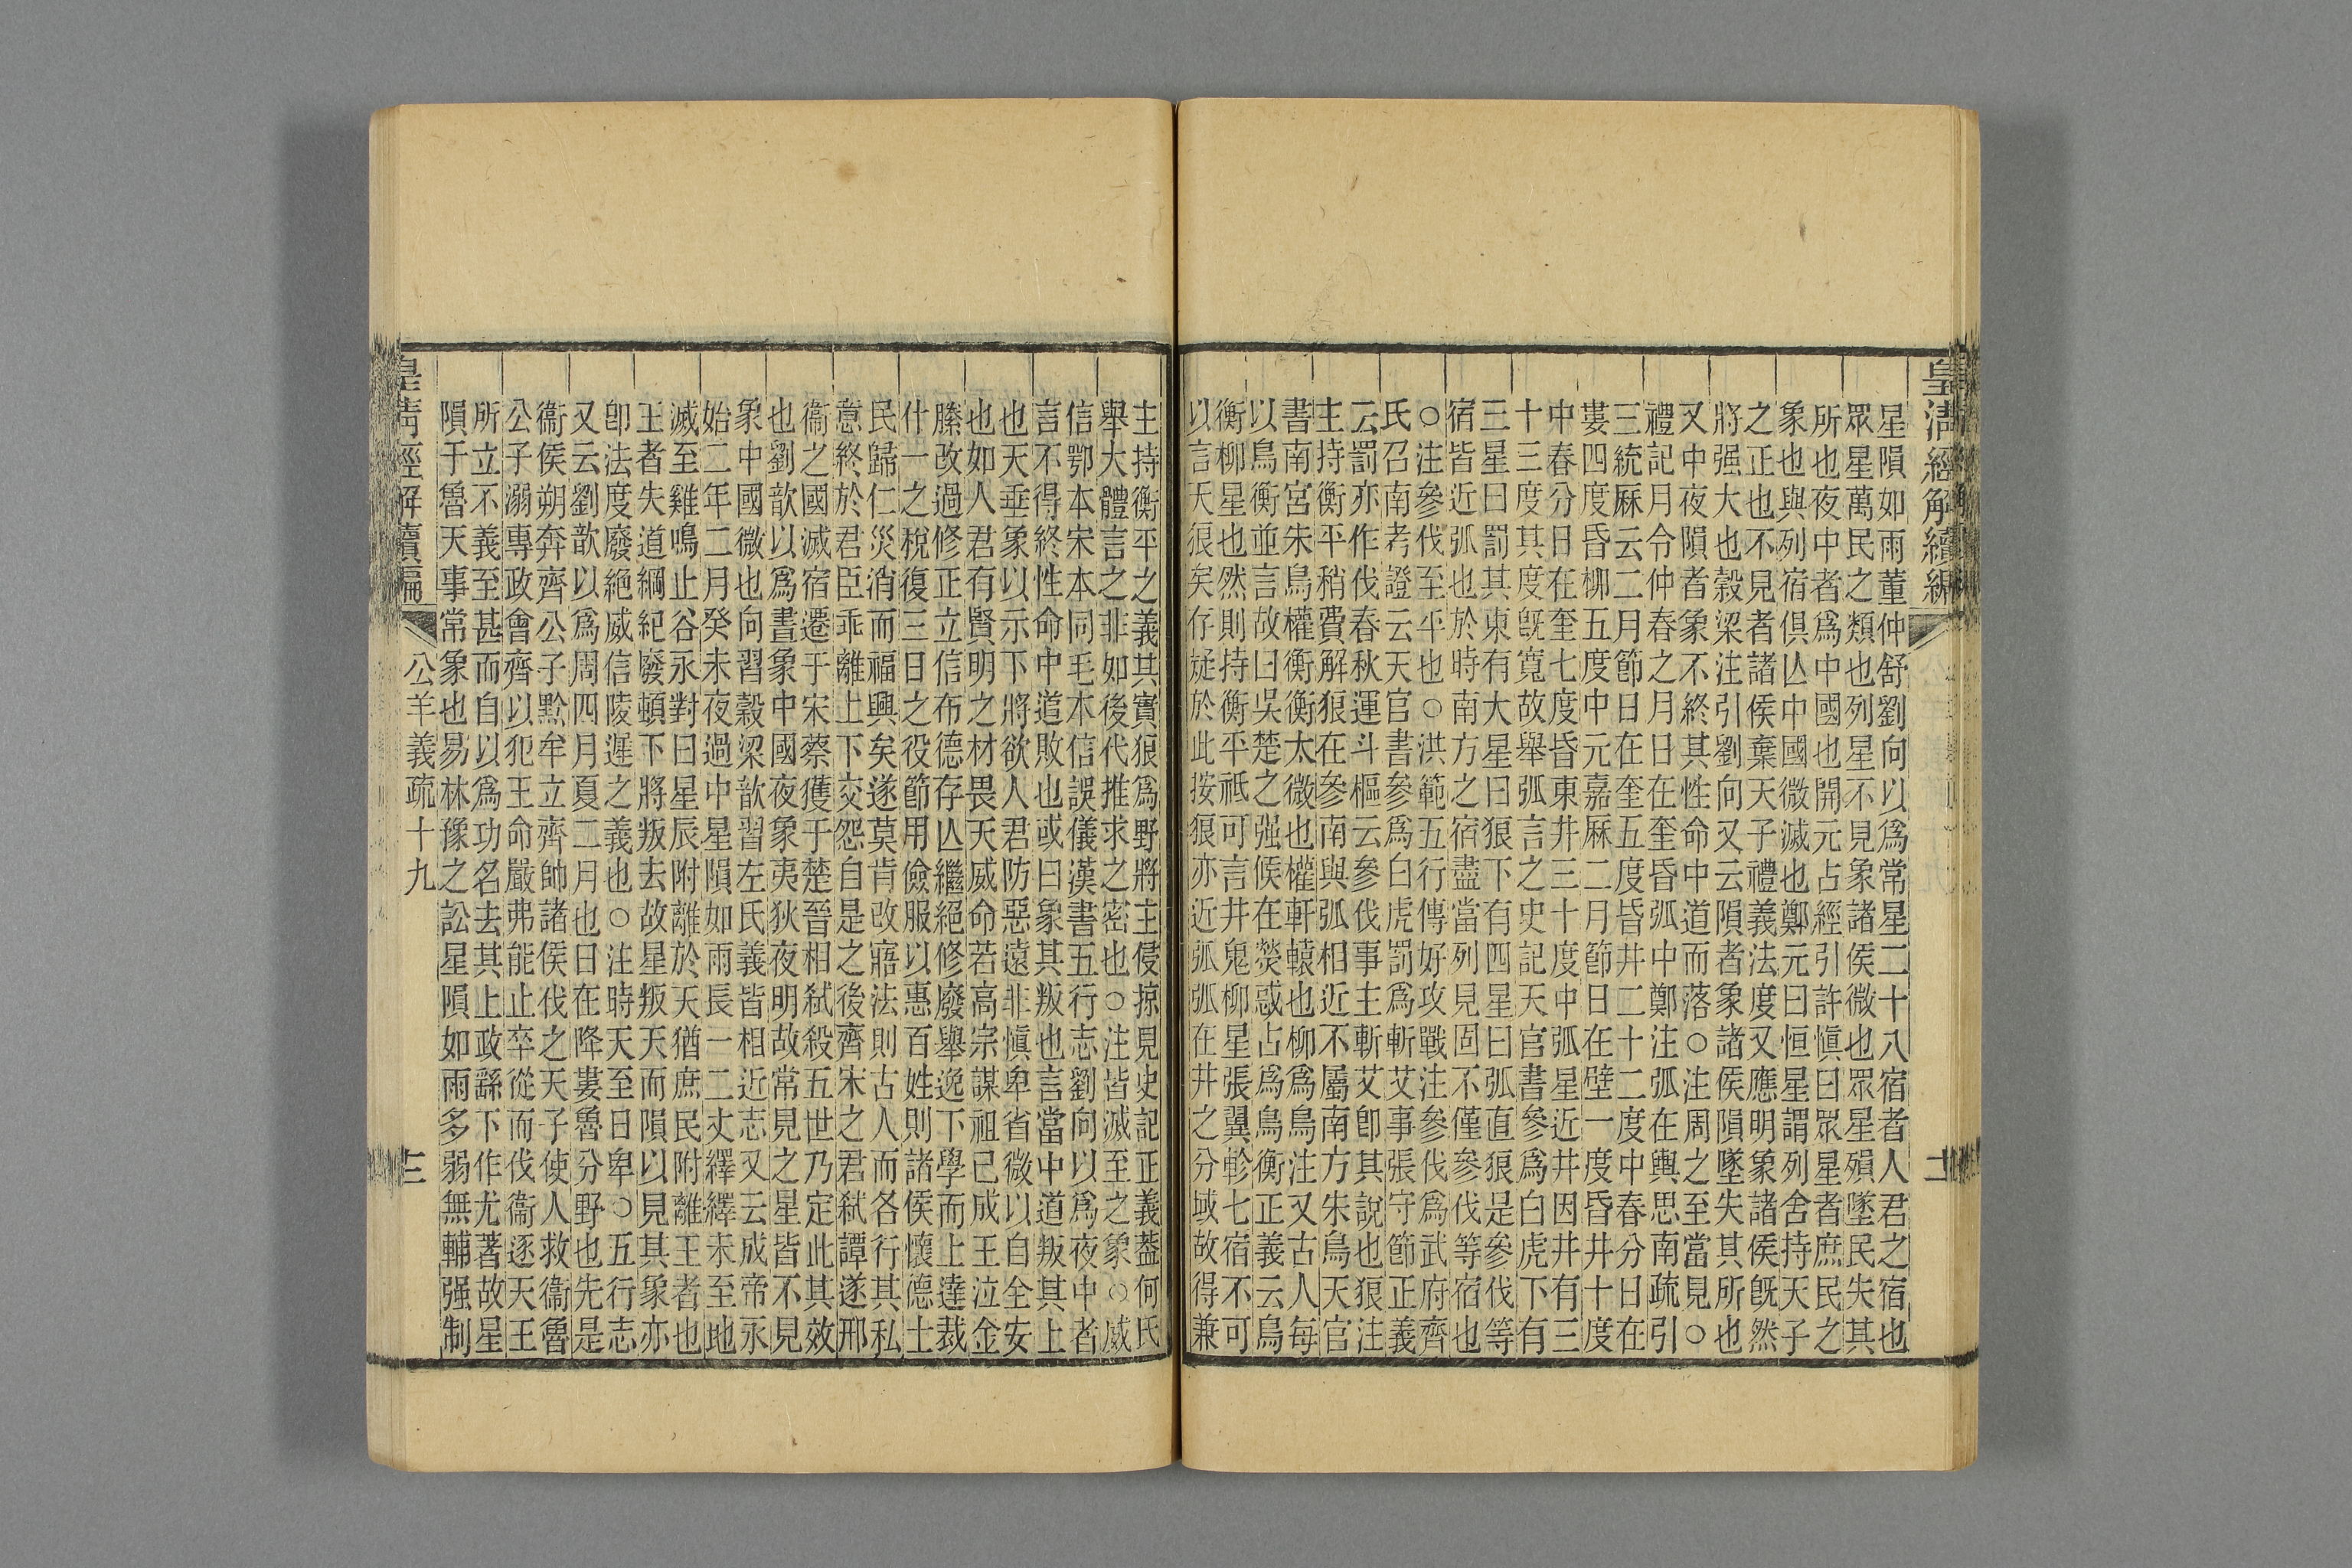 皇清經解續編
星隕如雨董仲舒劉向以為常星二十八宿者人君之宿也
眾星萬民之類也列星不見象諸侯微也眾星殞墜民失其
所也夜中者為中國也開元占經引許慎曰眾星者庶民之
象也與列宿俱亾中國微滅也鄭元曰恒星謂列舍持天子
之正也不見者諸侯棄天子禮義法度又應明象諸侯旣然
將强大也穀梁注引劉向又云隕者象諸侯隕墜失其所也
又中夜隕者象不終其性命中道而落○注周之至當見○
禮記月令仲春之月日在奎昏弧中鄭注弧在輿思南疏引
三統厤云二月節日在奎五度昏井二十二度中春分日在
婁四度昏柳五度中元嘉厤二月節日在壁一度昏井十度
中春分日在奎七度昏東井三十度中弧星近井因井有三
十三度其度旣寬故舉弧言之史記天官書參為白虎下有
三星曰罰其東有大星曰狼下有四星曰弧直狼是參伐等
宿皆近弧也於時南方之宿盡當列見固不僅參伐等宿也
○注參伐至平也○洪範五行傳好攻戰注參伐為武府齊
氏召南考證云天官書參為白虎罰為斬艾事張守節正義
云罰亦作伐春秋運斗樞云參伐事主斬艾卽其說也狼注
主持衡平稍費解狼在參南與弧相近不屬南方朱鳥天官
書南宮朱鳥權衡衡太微也權軒轅也柳為鳥注又古人每
以鳥衡並言故曰吳楚之强候在熒惑占為鳥衡正義云鳥
衡柳星也然則持衡平祇可言井鬼柳星張翼軫七宿不可
以言天狼矣存疑於此按狼亦近弧弧在井之分域故得兼
主持衡平之義其實狼為野將主侵掠見史記正義葢何氏
舉大體言之非如後代推求之密也○注皆滅至之象○威
信鄂本宋本同毛本信誤儀漢書五行志劉向以為夜中者
言不得終性命中道敗也或曰象其叛也言當中道叛其上
也天垂象以示下將欲人君防惡遠非慎卑省微以自全安
也如人君有賢明之材畏天威命若高宗謀祖已成王泣金
縢改過修正立信布德存亾繼絕修廢舉逸下學而上達裁
什一之稅復三日之役節用儉服以惠百姓則諸侯懷德士
民歸仁災消而福興矣遂莫肯改寤法則古人而各行其私
意終於君臣乖離上下交怨自是之後齊宋之君弑譚遂邢
衞之國滅宿遷于宋蔡獲于楚晉相弑殺五世乃定此其效
也劉歆以為晝象中國夜象夷狄夜明故常見之星皆不見
象中國微也向習穀梁歆習左氏義皆相近志又云成帝永
始二年二月癸未夜過中星隕如雨長一二丈繹繹未至地
滅至雞鳴止谷永對曰星辰附離於天猶庶民附離王者也
王者失道綱紀廢頓下將叛去故星叛天而隕以見其象亦
卽法度廢絕威信陵遲之義也○注時天至日卑○五行志
又云劉歆以為周四月夏二月也日在降婁魯分野也先是
衞侯朔奔齊公子黔牟立齊帥諸侯伐之天子使人救衞魯
公子溺專政會齊以犯王命嚴弗能止卒從而伐衞逐天王
所立不義至甚而自以為功名去其上政繇下作尤著故星
隕于魯天事常象也易林豫之訟星隕如雨多弱無輔强制
皇清經解續編
公羊義疏十九